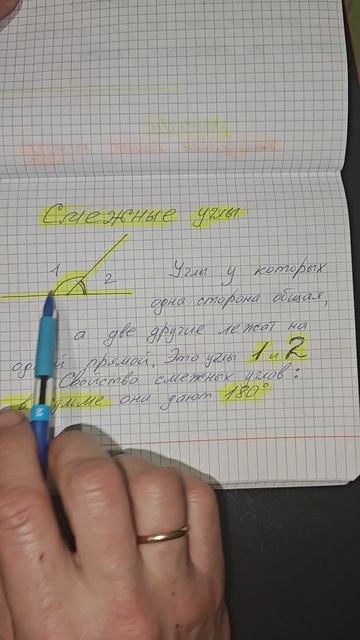 Смежные углы
1
2
Углы у которых
одна сторона общая,
а две другие лежат на
прямой. Это углы 1 и 2
Свойство смежных углов:
они дают 180°